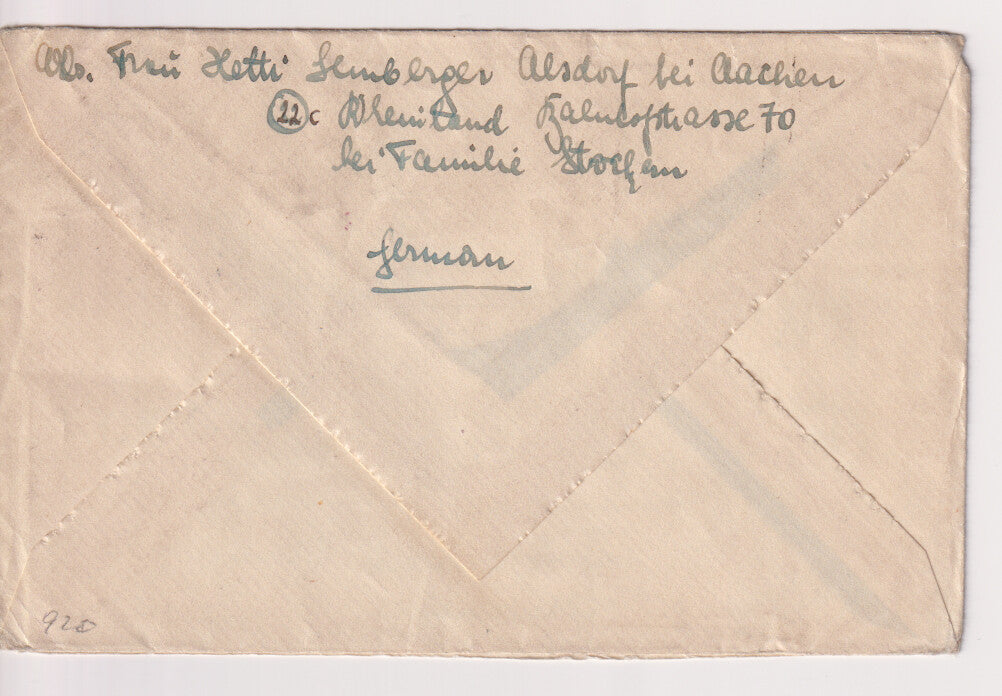 Abs. Frau Hetti Lemberger Alsdorf bei Aachen
22c Rheinland Bahnhofstrasse 70
bei Familie
German
920